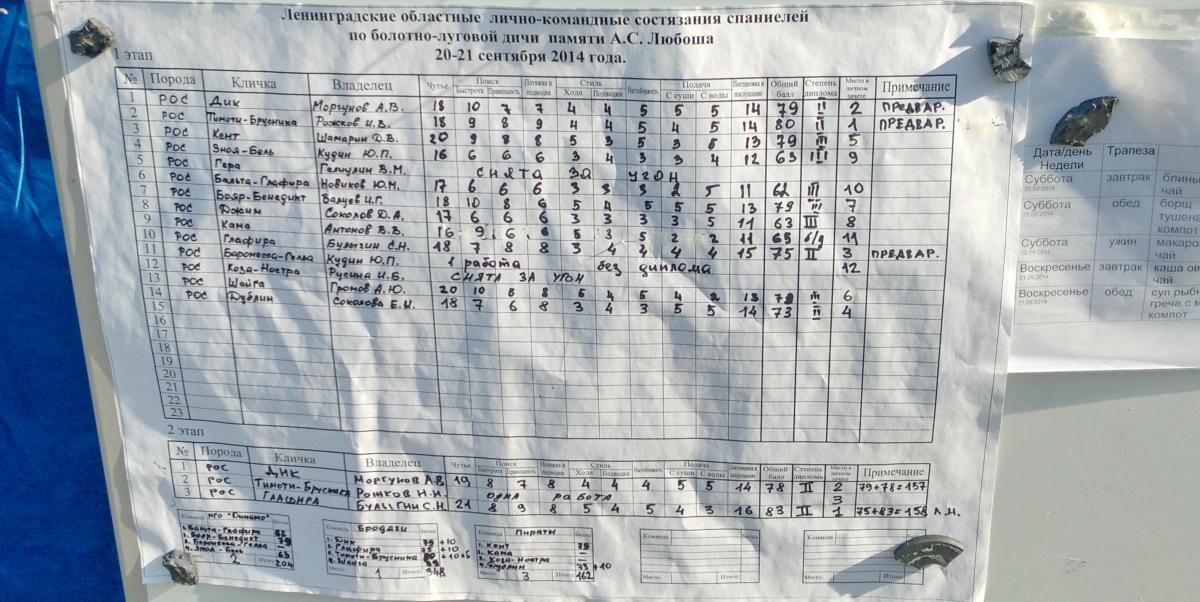 Ленинградские областные лично-командные состязания спаниелей
по болотно-луговой дичи памяти А.С. Любоша
20-21 сентября 2014 года.
1 этап
№ Порода Кличка Владелец Чутье Поиск Потяжка и подводка Стиль Настойчивость Подача Постановка и послушание Общий балл Степень диплома Место в личном зачете Примечание
Быстрота Правильность Хода Подводки С суши С воды
1 РОС Дик Моргунов А.В. 18 10 7 7 4 4 5 5 5 14 79 II 2 ПРЕДВАР.
2 РОС Тимоти-Брусника Рожков И.В. 18 9 8 9 4 4 5 4 5 14 80 II 1 ПРЕДВАР.
3 РОС Кент Шамарин Д.В. 20 9 8 8 5 3 5 3 5 13 79 III 5
4 РОС Эноя-Бель Кудин Ю.П. 16 6 6 6 3 4 3 3 4 12 63 III 9
5 РОС Гера В.М. СНЯТА ЗА УГОН
6 РОС Бальта-Глафира Новиков Ю.М. 17 6 6 6 3 3 3 2 5 11 62 III 10
7 РОС Бояр-Бенедикт Валуев И.Г. 18 10 8 6 5 4 5 5 5 13 79 III 7
8 РОС Джим Соколов Д.А. 17 6 6 6 3 3 3 3 5 11 63 III 8
9 РОС Кама Антонов В.В. 16 9 6 6 5 3 5 2 2 11 65 б/д 11
10 РОС Глафира Булыгин С.Н. 18 7 8 8 3 4 4 4 4 15 75 II 3 ПРЕДВАР.
11 РОС Баронесса-Гелва Кудин Ю.П. 1 работа без диплома
12 РОС Коза-Ностра Русина И.Б. СНЯТА ЗА УГОН 12
13 РОС Шайга Громов А.Ю. 20 10 8 5 4 5 4 2 13 III 6
14 РОС Дублин Соколова Е.И. 18 7 6 8 3 4 3 5 5 14 73 II 4
15
16
17
18
19
20
21
22
23
2 этап
№ Порода Кличка Владелец Чутье Поиск Потяжка и подводка Стиль Настойчивость Подача Постановка и послушание Общий балл Степень диплома Место в личном зачете Примечание
Быстрота Правильность Хода Подводки С суши С воды
1 РОС ДИК Моргунов А.В. 19 8 7 8 4 4 4 5 5 14 78 II 2 79+78=157
2 РОС Тимоти-Брусника Рожков И.И. одна работа 3
3 РОС ГЛАФИРА БУЛЫГИН С.Н. 21 8 9 8 5 4 5 4 3 16 83 II 1 75+83=158 Л.Н.
Команда МГО "Динамо" Баллы
1. Бальта-Глафира 62
2. Бояр-Бенедикт 79
3. Баронесса-Гелва —
4. Эноя-Бель 63
Место: 2 Итого: 204
Бродяги
1. Дик 79 +10
2. Глафира 75 +10
3. Тимоти-Брусника 80 +10+5
4. Шайга
Место: 1 Итого: 348
Команда Пираты Баллы
1. Кент 79
2. Кама —
3. Коза-Ностра —
4. Дублин 73 +10
Место: 3 Итого: 162
Команда Баллы
Место: Итого:
Команда Баллы
Место: Итого
Дата/день Недели Трапеза
Суббота 20.09.2014 завтрак блины чай
Суббота 20.09.2014 обед борщ тушена компот
Суббота 20.09.2014 ужин макаро чай
Воскресенье 21.09.2014 завтрак каша ов чай
Воскресенье 21.09.2014 обед суп рыбн греча с м компот